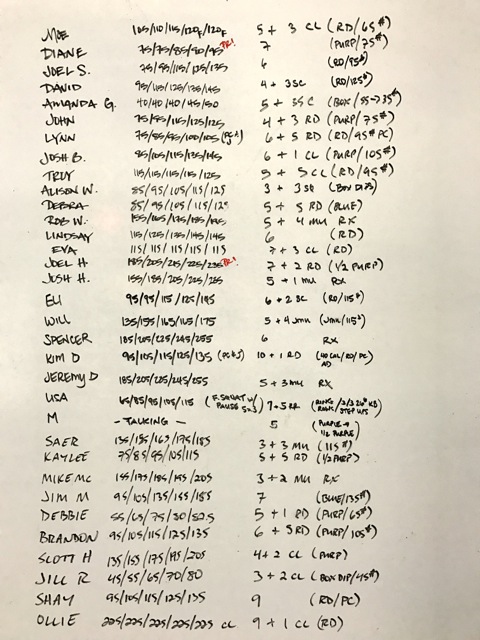 MOE 105/110/115/120F/120F 5 + 3 CL (RD/65#)
DIANE 75/75/85/90/95 PR! 7 (PURP/75#)
JOEL S. 75/95/115/135/135 6 (RD/95#)
DAVID 95/115/125/135/145 4 + 3SC (RD/125#)
AMANDA G. 40/40/40/45/50 5 + 3SC (BOX/55→35#)
JOHN 75/85/115/125/125 4 + 3 RD (PURP/75#)
LYNN 75/85/95/100/105 6 + 5 RD (RD/95# PC)
JOSH B. 85/105/115/135/145 6 + 1 CL (PURP/105#)
TROY 115/115/115/115/125 5 + 5 CL (RD/95#)
ALISON W. 85/95/105/115/125 3 + 3 SR (BOX DIPS)
DEBRA 85/95/105/115/125 5 + 5 RD (BLUE)
ROB W. 155/165/175/185/195 5 + 4 MU RX
LINDSAY 115/125/135/145/145 6 (RD)
EVA 115/115/115/115/115 7 + 3 CL (RD)
JOEL H 185/205/215/225/235 PR! 7 + 2 RD (1/2 PURP)
JOSH H. 155/185/205/225/225 5 + 1 MU RX
ELI 95/95/115/125/145 6 + 2 SC (RD/115#)
WILL 135/155/165/165/175 5 + 4 JMU (JMU/115#)
SPENCER 185/205/225/245/255 6 RX
KIM D 95/105/115/125/135 10 + 1 RD (40 CAL/RD/PC) AD
JEREMY D 185/205/205/245/255 5 + 3 MU RX
LISA 65/85/95/105/115 (F. SQUAT W/ PAUSE 5x3) 7+5 RR (RING ROWS/2/3 26# KB STEP UPS)
M - TALKING - 5 (PURPLE → 1/2 PURPLE)
SAER 135/155/165/175/185 3 + 3 MU (115#)
KAYLEE 75/85/95/105/115 5 + 5 RD (1/2 PURP)
MIKE MC 155/175/185/195/205 3 + 2 MU RX
JIM M 95/105/135/155/185 7 (BLUE/135#)
DEBBIE 55/65/75/80/82.5 5 + 1 RD (PURP/65#)
BRANDON 95/105/115/125/135 6 + 5 RD (PURP/105#)
SCOTT H 135/155/175/195/205 4 + 2 CL (PURP)
JILL R 45/55/65/70/80 3 + 2 CL (BOX DIP/45#)
SHAY 95/105/115/125/135 9 (RD/PC)
OLLIE 205/225/225/225/225 CL 9 + 1 CL (RD)